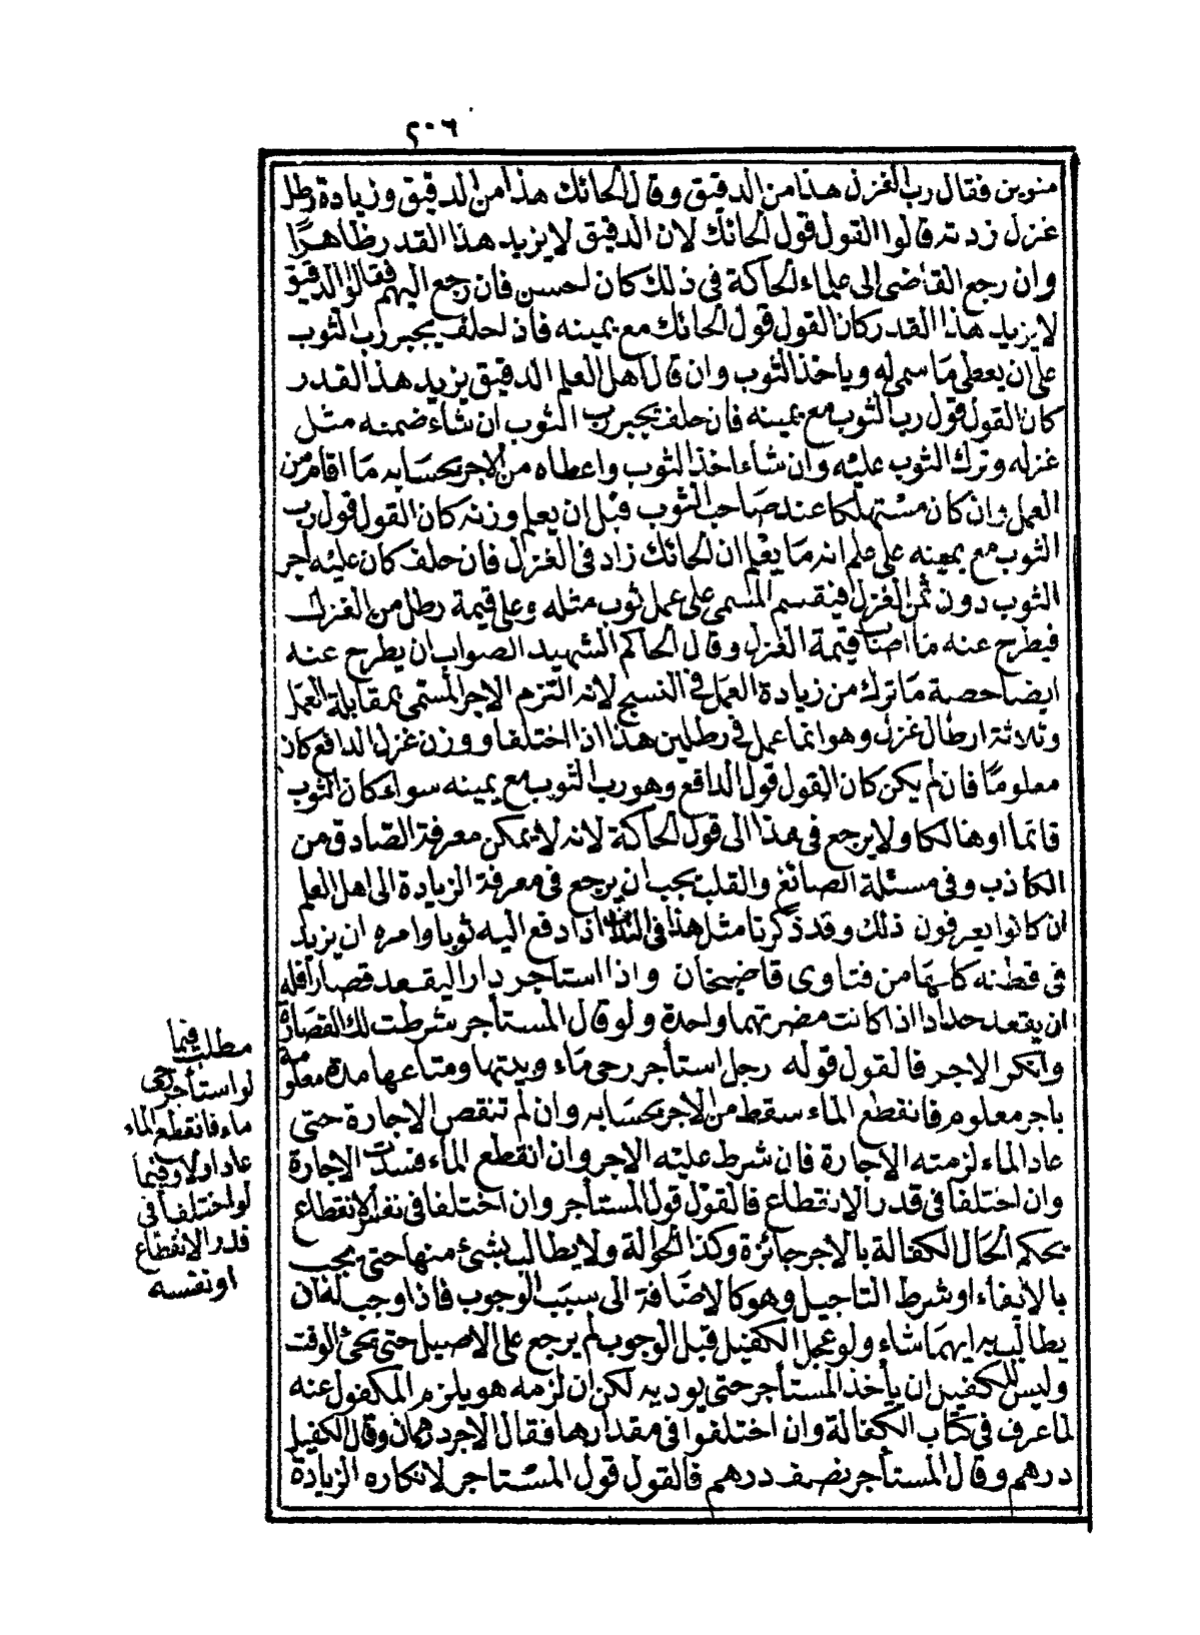 ٢٠٦
منوين فقال رب الغزل هذا من الدقيق وقال الحائك هذا من الدقيق وزيادة رطل
غزل زدته قالوا القول قول الحائك لان الدقيق لا يزيد هذا القدر ظاهرًا
وان رجع القاضى الى علماء الحاكة فى ذلك كان احسن فان رجع اليهم فقالوا الدقيق
لا يزيد هذا القدر كان القول قول الحائك مع يمينه فاذا حلف يجبر رب الثوب
على ان يعطى ما سمى له وياخذ الثوب وان قال اهل العلم الدقيق يزيد هذا القدر
كان القول قول رب الثوب مع يمينه فان حلف يخير رب الثوب ان شاء ضمنه مثل
غزله وترك الثوب عليه وان شاء اخذ الثوب واعطاه من الاجر بحسابه ما اقام من
العمل وان كان مستهلكا عند صاحب الثوب قبل ان يعلم وزنه كان القول قول رب
الثوب مع يمينه على علم انه ما يعلم ان الحائك زاد فى الغزل فان حلف كان عليه اجر
الثوب دون ثمن الغزل فيقسم المسمى على عمل ثوب مثله وعلى قيمة رطل من الغزل
فيطرح عنه ما اصاب قيمة الغزل وقال الحاكم الشهيد الصواب ان يطرح عنه
ايضا حصة ما ترك من زيادة العمل فى النسج لانه التزم الاجر المسمى بمقابلة العمل
وثلاثة ارطال غزل وهو انما عمل فى رطلين هذا اذا اختلفا ووزن غزل الدافع كان
معلومًا فان لم يكن كان القول قول الدافع وهو رب الثوب مع يمينه سواء كان الثوب
قائما او هالكا ولا يرجع فى هذا الى قول الحاكة لانه لا يمكن معرفة الصادق من
الكاذب وفى مسئلة الصائغ والقلب يجب ان يرجع فى معرفة الزيادة الى اهل العلم
ان كانوا يعرفون ذلك وقد ذكرنا مثل هذا فى الندف اذا دفع اليه ثوبا وامره ان يزيد
فى قطنه كلها من فتاوى قاضيخان واذا استاجر دارا ليقعد قصارا فله
ان يقعد حدادا اذا كانت مضرتهما واحدة ولو قال المستأجر شرطت لك القصارة
وانكر الاجر فالقول قوله رجل استأجر رحى ماء وبيتها ومتاعها مدة معلومة
باجر معلوم فانقطع الماء سقط من الاجر بحسابه وان لم تنقص الاجارة حتى
عاد الماء لزمته الاجارة فان شرط عليه الاجر وان انقطع الماء فسدت الاجارة
وان اختلفا فى قدر الانقطاع فالقول قول المستأجر وان اختلفا فى نفس الانقطاع
يحكم الحال الكفالة بالاجر جائزة وكذا الحوالة ولا يطالب بشئ منها حتى يجب
بالايفاء او شرط التاجيل وهو كالاضافة الى سبب الوجوب فاذا وجب له ان
يطالب به ايهما شاء ولو عجل الكفيل قبل الوجوب لم يرجع على الاصيل حتى يجئ الوقت
وليس للكفيل ان يأخذ المستأجر حتى يوديه لكن ان لزمه هو يلزم المكفول عنه
لما عرف فى كتاب الكفالة وان اختلفوا فى مقدارها فقال الاجر درهمان وقال الكفيل
درهم وقال المستأجر نصف درهم فالقول قول المستاجر لانكاره الزيادة
مطلب فيما
لو استأجر رحى
ماء فانقطع الماء
عاد او لا وفيما
لو اختلفا فى
قدر الانقطاع
او نفسه